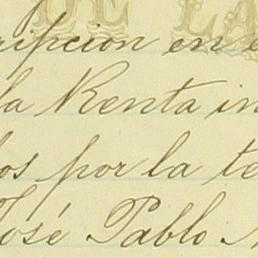 DE LA
ripcion en e
la Renta in
dos por la te
José Pablo